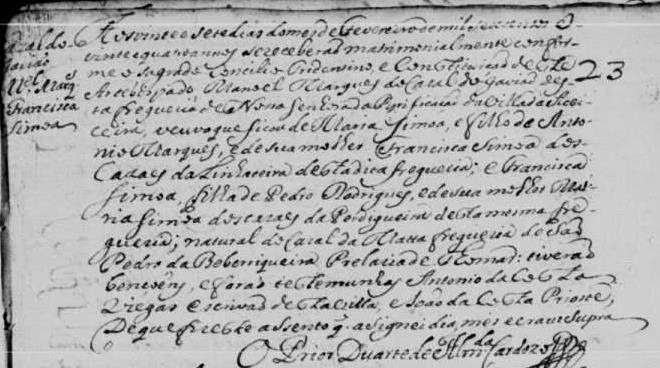 Cazal do
Gavião
M.el Marq
Francisca
Simoa
Aos vinte e sete dias do mes de Fevereiro de mil e setecentos e
vinte e quatro annos se receberaõ matrimonialmente confor-
me o sagrado Concilio Tridentino, e Constituicaõ deste
Arcebispado Manoel Marques do Cazal do Gaviaõ des-
23
ta freguezia de Nossa Senhora da Purificaçaõ da Villa da Acei-
ceira, veuvo que ficou de Maria Simoa, e filho de Anto-
nio Marques, e de sua molher Francisca Simoa dos
Cazaes da Linhaceira desta dita freguezia; e Francisca
Simoa, filha de Pedro Rodrigues, e de sua molher Ma-
ria Simoa dos cazaes da Perdigueira desta mesma fre-
guezia; natural do Cazal da Matta freguezia de Saõ
Pedro da Beberriqueira Prelazia de Thomar: tiveraõ
bençoens, e foraõ testemunhas Antonio da Costa
Viegas escrivaõ desta villa, e Joaõ da Costa Prioste,
De que fiz este assento q̃ asignei dia, mes e era ut supra
O Prior Duarte de Alm.da Cardozo